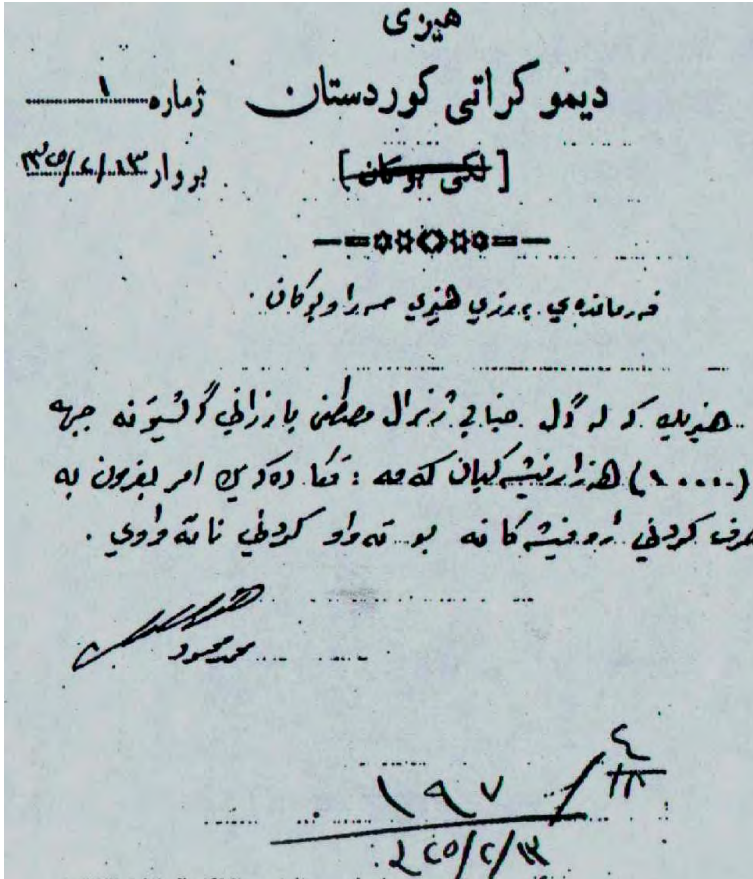 هیزی
دیموکراتی کوردستان
ژماره ١
[لکی بوکان]
بروار ١٣٢٥/٢/١٣
فەرماندەی بەرزی هیزی سەرا و بوکان.
هیزیک کە لە گل جنابی ژنرال مصطفی بارزانی گشیوتە جبهە
(١٠٠٠٠) هزار فیشەکیان کەمە : تکا دەکەین امر بفرمون بە
صرف کردنی أو فیشەکانە بو تەواو کردنی ناتەواوی .
محمد محمود
١٩٧ / ٤
٢٥/٢/١٣